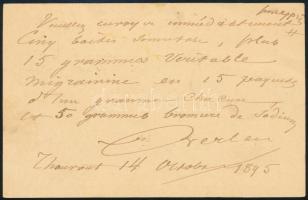 Veuillez envoyer immédiatement
Cinq boites Somatose, plus
15 grammes Véritable
migrainine en 15 paquets
d'un gramme chacun
et 50 grammes bromure de Sodium
Thourout 14 Octobre 1895